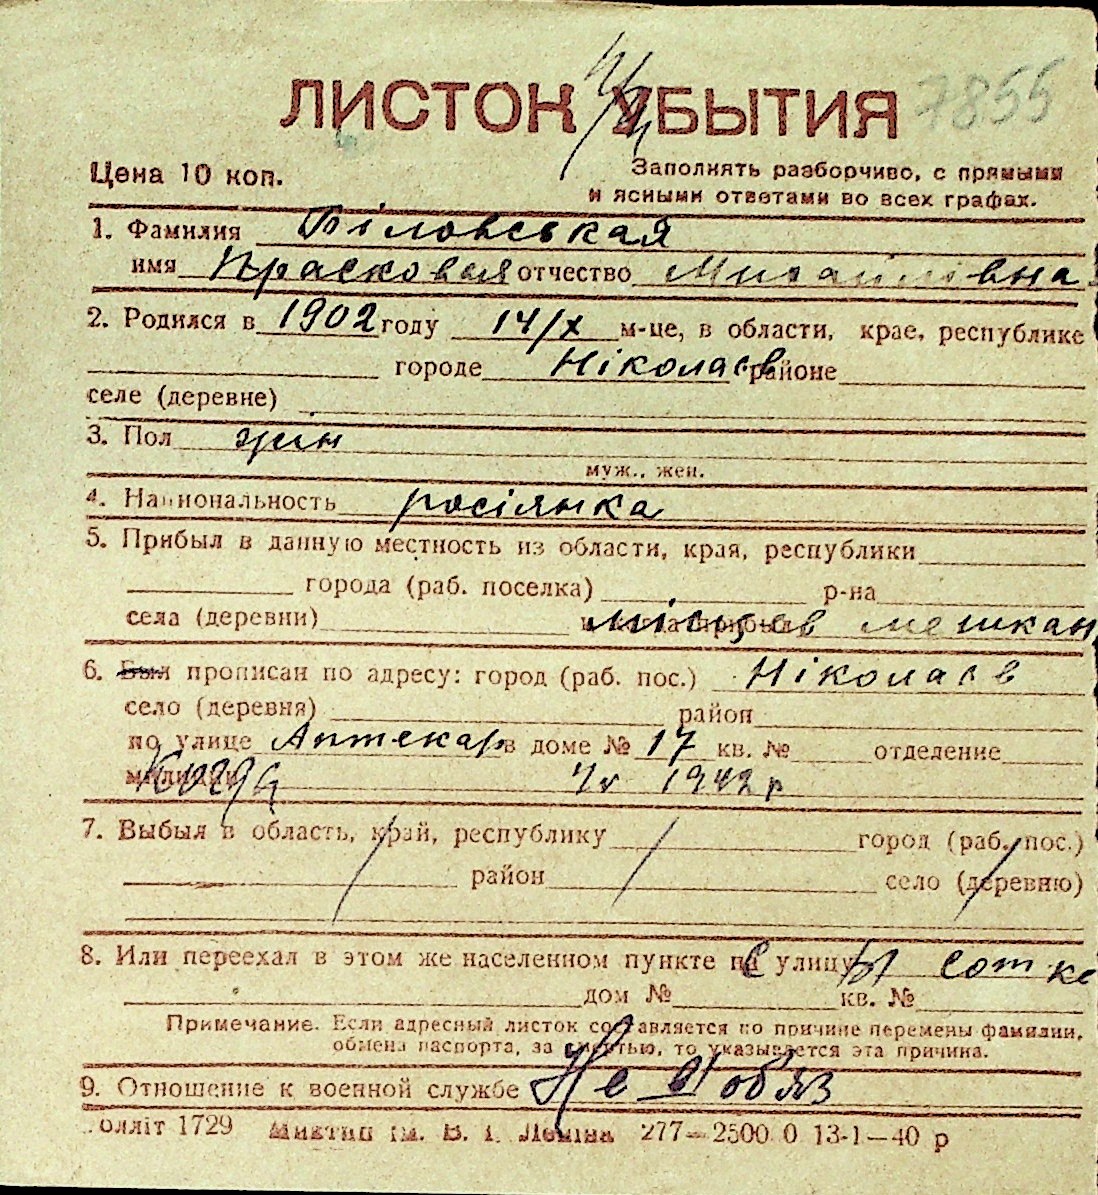 ЛИСТОК УБЫТИЯ 7855
Цена 10 коп.
Заполнять разборчиво, с прямыми
и ясными ответами во всех графах.
1. Фамилия Біловськая
имя Прасковья отчество Михайлівна
2. Родился в 1902 году 14/X м-це, в области, крае, республике
городе Ніколаєв районе
селе (деревне)
3. Пол жін
муж., жен.
4. Национальность росіянка
5. Прибыл в данную местность из области, края, республики
города (раб. поселка) р-на
села (деревни) місцев мешкан
6. Был прописан по адресу: город (раб. пос.) Ніколаєв
село (деревня) район
по улице Аптекар в доме № 17 кв. № отделение
милиции 1942 р
7. Выбыл в область, край, республику город (раб. пос.)
район село (деревню)
8. Или переехал в этом же населенном пункте на улицу
дом № кв. №
Примечание. Если адресный листок составляется по причине перемены фамилии,
обмена паспорта, за смертью, то указывается эта причина.
9. Отношение к военной службе Не в/обяз
олліт 1729 Миктип ім. В. І. Леніна 277—2500 0 13-1—40 р